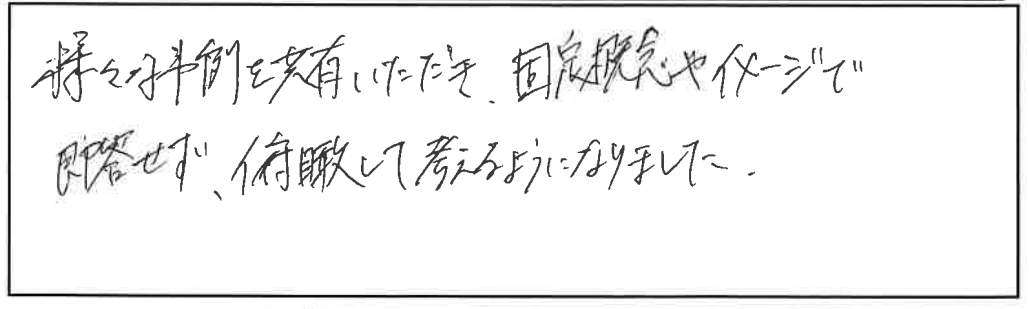 様々な事例を共有いただき、固定概念やイメージで
即答せず、俯瞰して考えるようになりました。